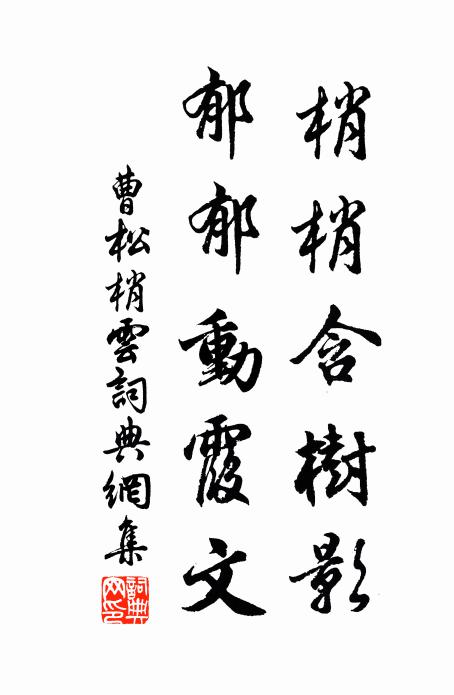 梢梢含樹影
郁郁動霞文
曹松梢雲詞典網集
詞典网印